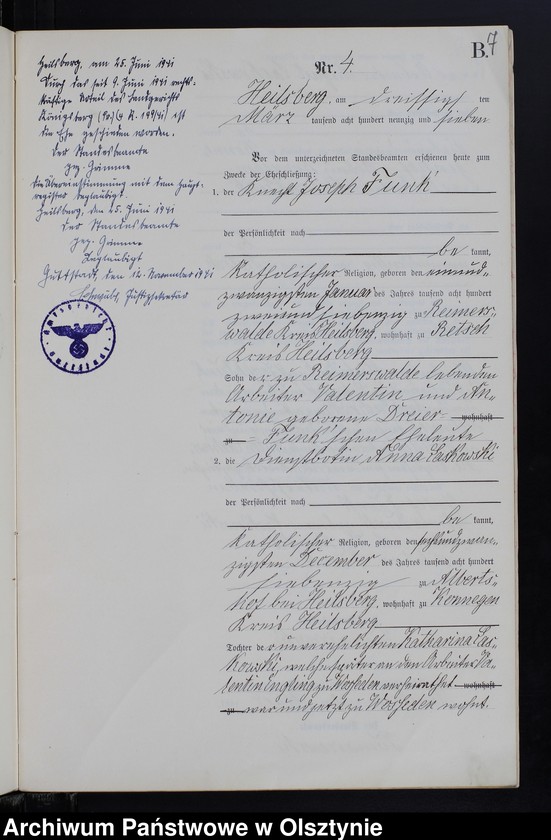 B. 7
Nr. 4.
Heilsberg, am 25. Juni 1941
Durch das seit 9. Juni 1941 rechts-
kräftige Urteil des Landgerichts
Königsberg (Pr.) (4 R. 199/41) ist
die Ehe geschieden worden.
Der Standesbeamte
gez. Grimme
Die Übereinstimmung mit dem Haupt-
register beglaubigt.
Heilsberg, den 25. Juni 1941
Der Standesbeamte
gez. Grimme
Beglaubigt
Guttstadt, den 12. November 1941
Justizsekretär
Amtsgericht
Guttstadt
Heilsberg, am dreißigsten
März tausend acht hundert neunzig und sieben
Vor dem unterzeichneten Standesbeamten erschienen heute zum
Zwecke der Eheschließung:
1. der Knecht Joseph Funk
der Persönlichkeit nach
be kannt,
katholischer Religion, geboren den einund-
zwanzigsten Januar des Jahres tausend acht hundert
zweiundsiebenzig zu Reimers-
walde Kreis Heilsberg, wohnhaft zu Retsch
Kreis Heilsberg
Sohn der zu Reimerswalde lebenden
Arbeiter Valentin und An-
tonie geborene Dreier wohnhaft
zu = Funk'schen Eheleute
2. die Dienstbotin Anna Laskowski
der Persönlichkeit nach
be kannt,
katholischer Religion, geboren den sechsundzwan-
zigsten December des Jahres tausend acht hundert
siebenzig zu Alberts-
hof bei Heilsberg, wohnhaft zu Konnegen
Kreis Heilsberg
Tochter der unverehelichten Katharina Las-
kowski, welche später an den Arbeiter Va-
lentin Engling zu Wosseden verheirathet wohnhaft
zu war und jetzt zu Wosseden wohnt
Archiwum Państwowe w Olsztynie